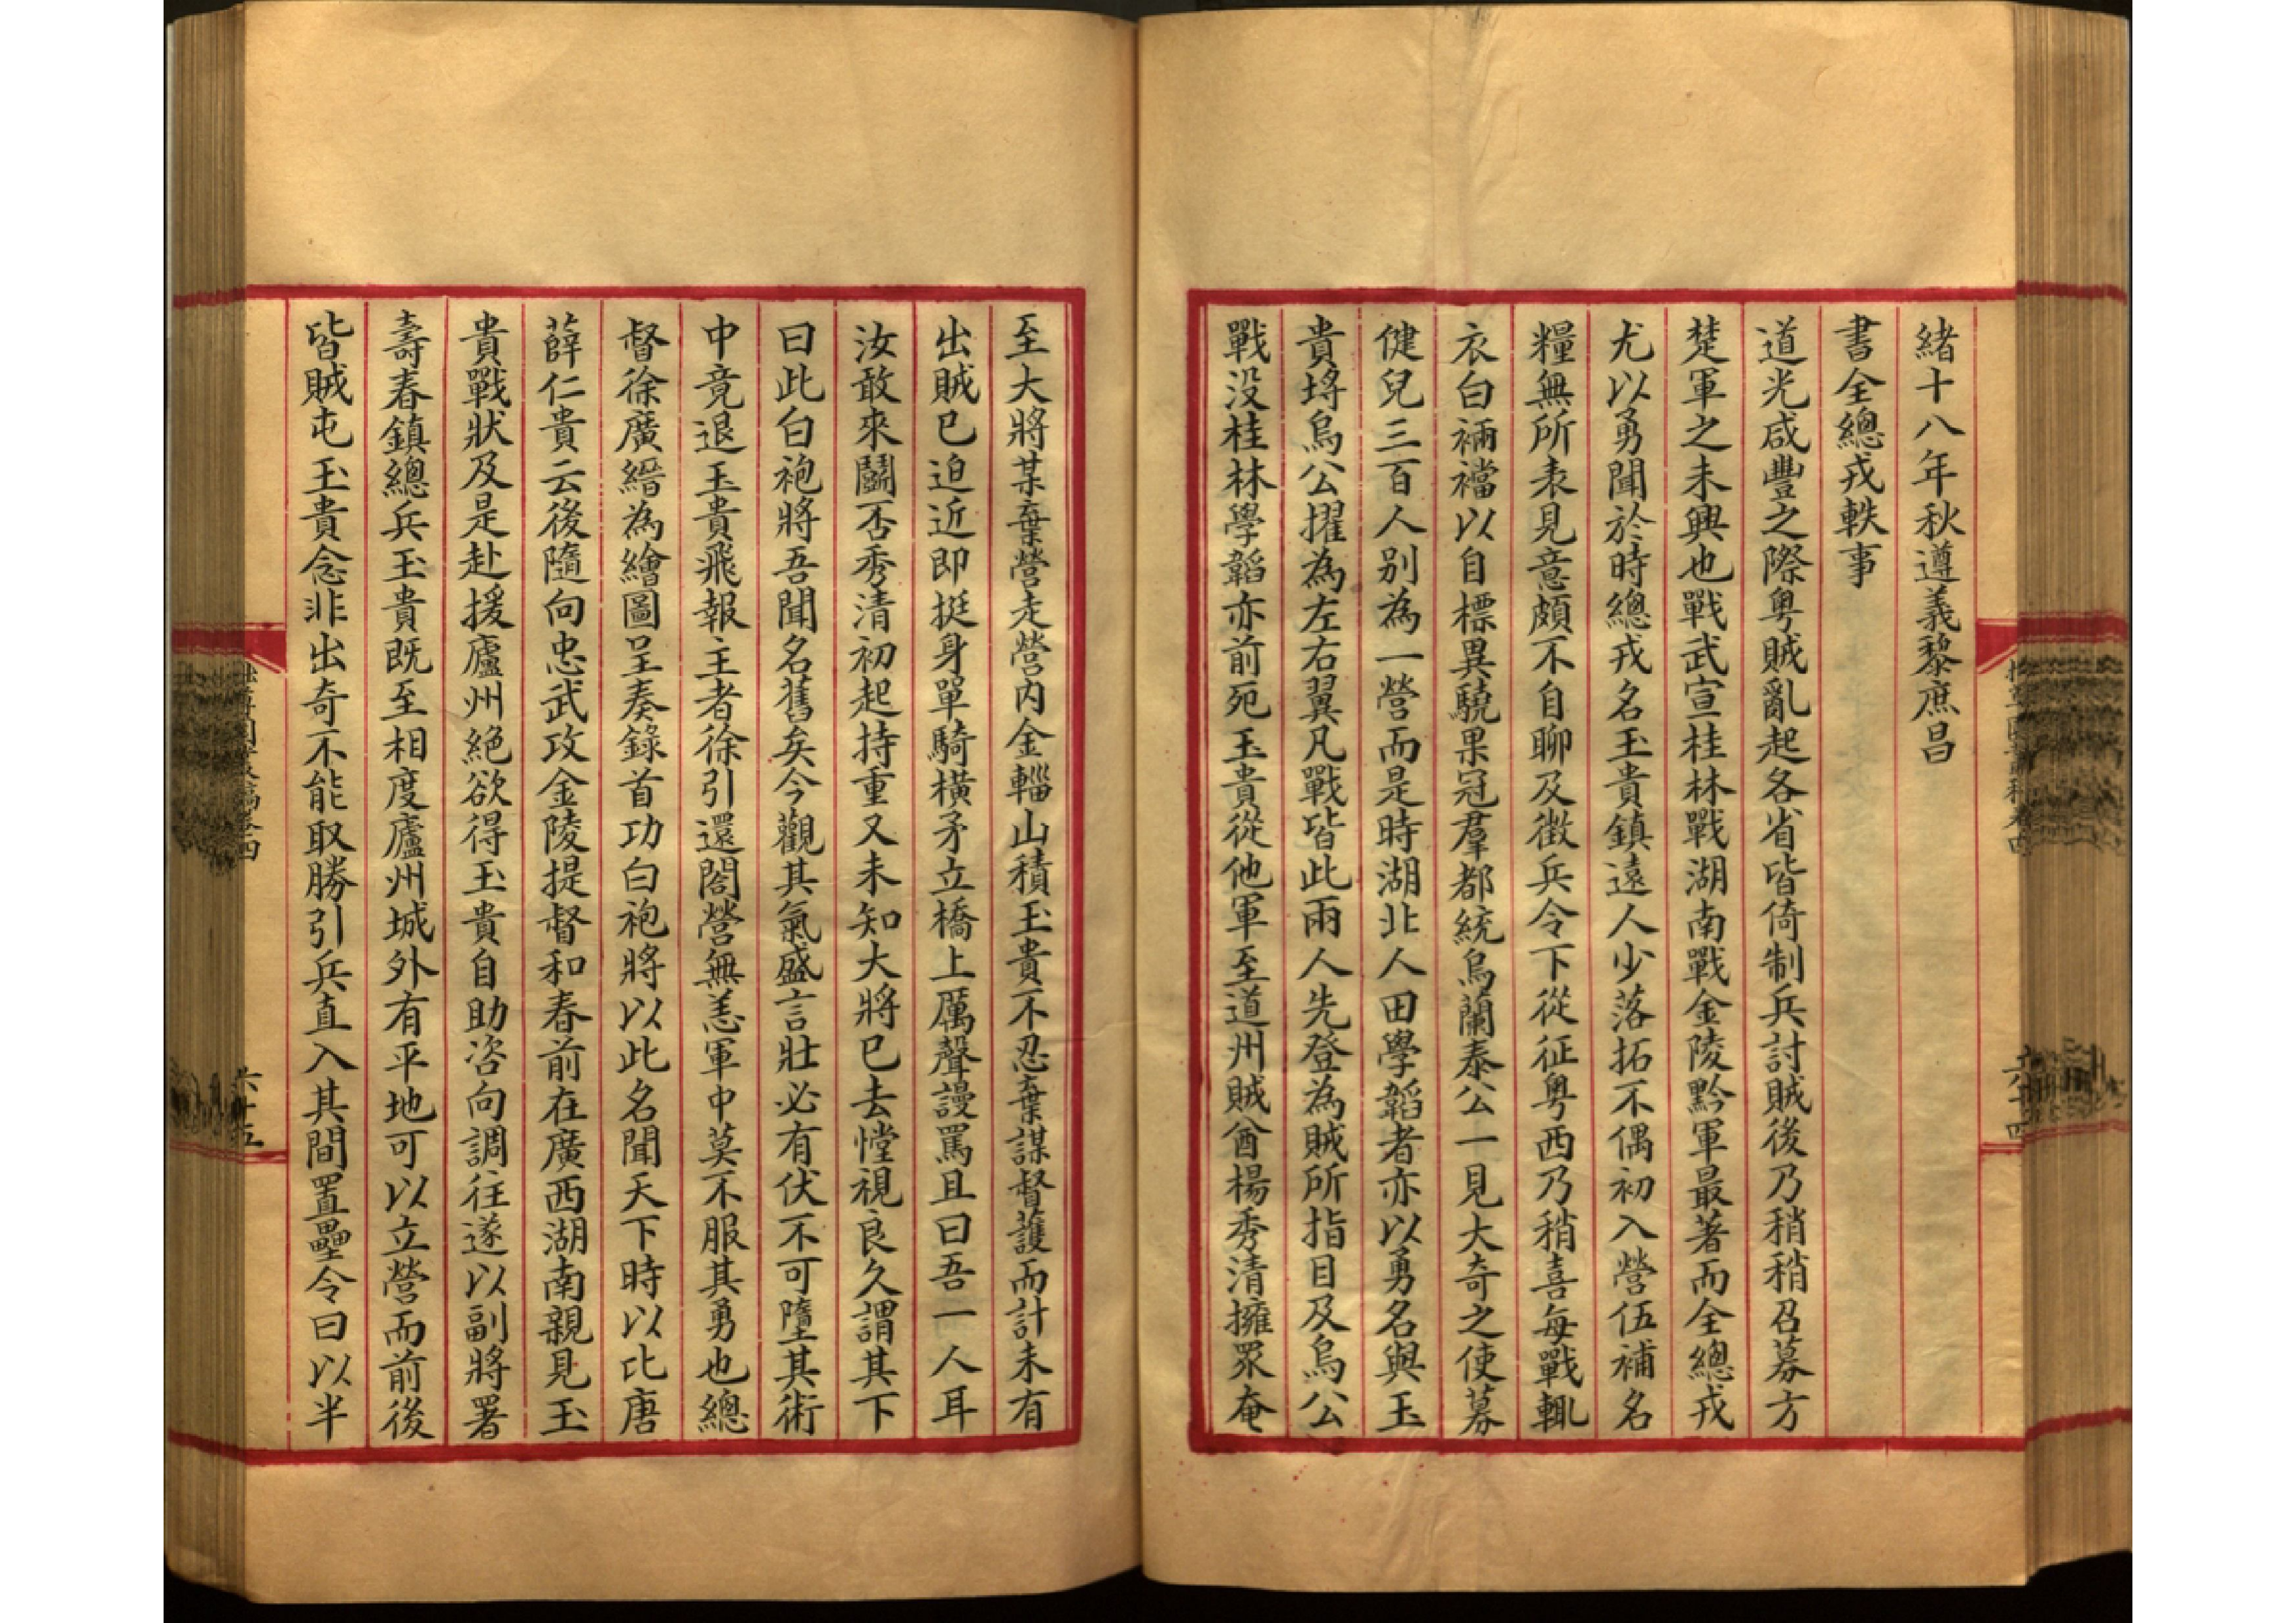 緒十八年秋遵義黎庶昌
書全總戎軼事
道光咸豐之際粵賊亂起各省皆倚制兵討賊後乃稍稍召募方
楚軍之未興也戰武宣桂林戰湖南戰金陵黔軍最著而全總戎
尤以勇聞於時總戎名玉貴鎮遠人少落拓不偶初入營伍補名
糧無所表見意頗不自聊及徵兵令下從征粵西乃稍喜每戰輒
衣白裲襠以自標異驍果冠羣都統烏蘭泰公一見大奇之使募
健兒三百人別為一營而是時湖北人田學韜者亦以勇名與玉
貴埒烏公擢為左右翼凡戰皆此兩人先登為賊所指目及烏公
戰没桂林學韜亦前死玉貴從他軍至道州賊酋楊秀清擁眾奄
至大將某棄營走營内金輜山積玉貴不忍棄謀督護而計未有
出賊已迫近即挺身單騎橫矛立橋上厲聲謾罵且曰吾一人耳
汝敢來鬭否秀清初起持重又未知大將已去憆視良久謂其下
曰此白袍將吾聞名舊矣今觀其氣盛言壯必有伏不可墮其術
中竟退玉貴飛報主者徐引還閤營無恙軍中莫不服其勇也總
督徐廣縉為繪圖呈奏錄首功白袍將以此名聞天下時以比唐
薛仁貴云後隨向忠武攻金陵提督和春前在廣西湖南親見玉
貴戰狀及是赴援廬州絕欲得玉貴自助咨向調往遂以副將署
壽春鎮總兵玉貴既至相度廬州城外有平地可以立營而前後
皆賊屯玉貴念非出奇不能取勝引兵直入其間置壘令曰以半